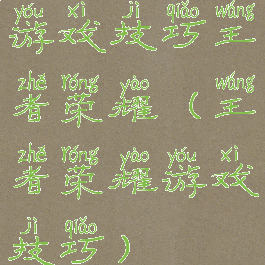 yóu xì jì qiǎo wáng
游戏技巧王
zhě róng yào wáng
者荣耀（王
zhě róng yào yóu xì
者荣耀游戏
jì qiǎo
技巧）